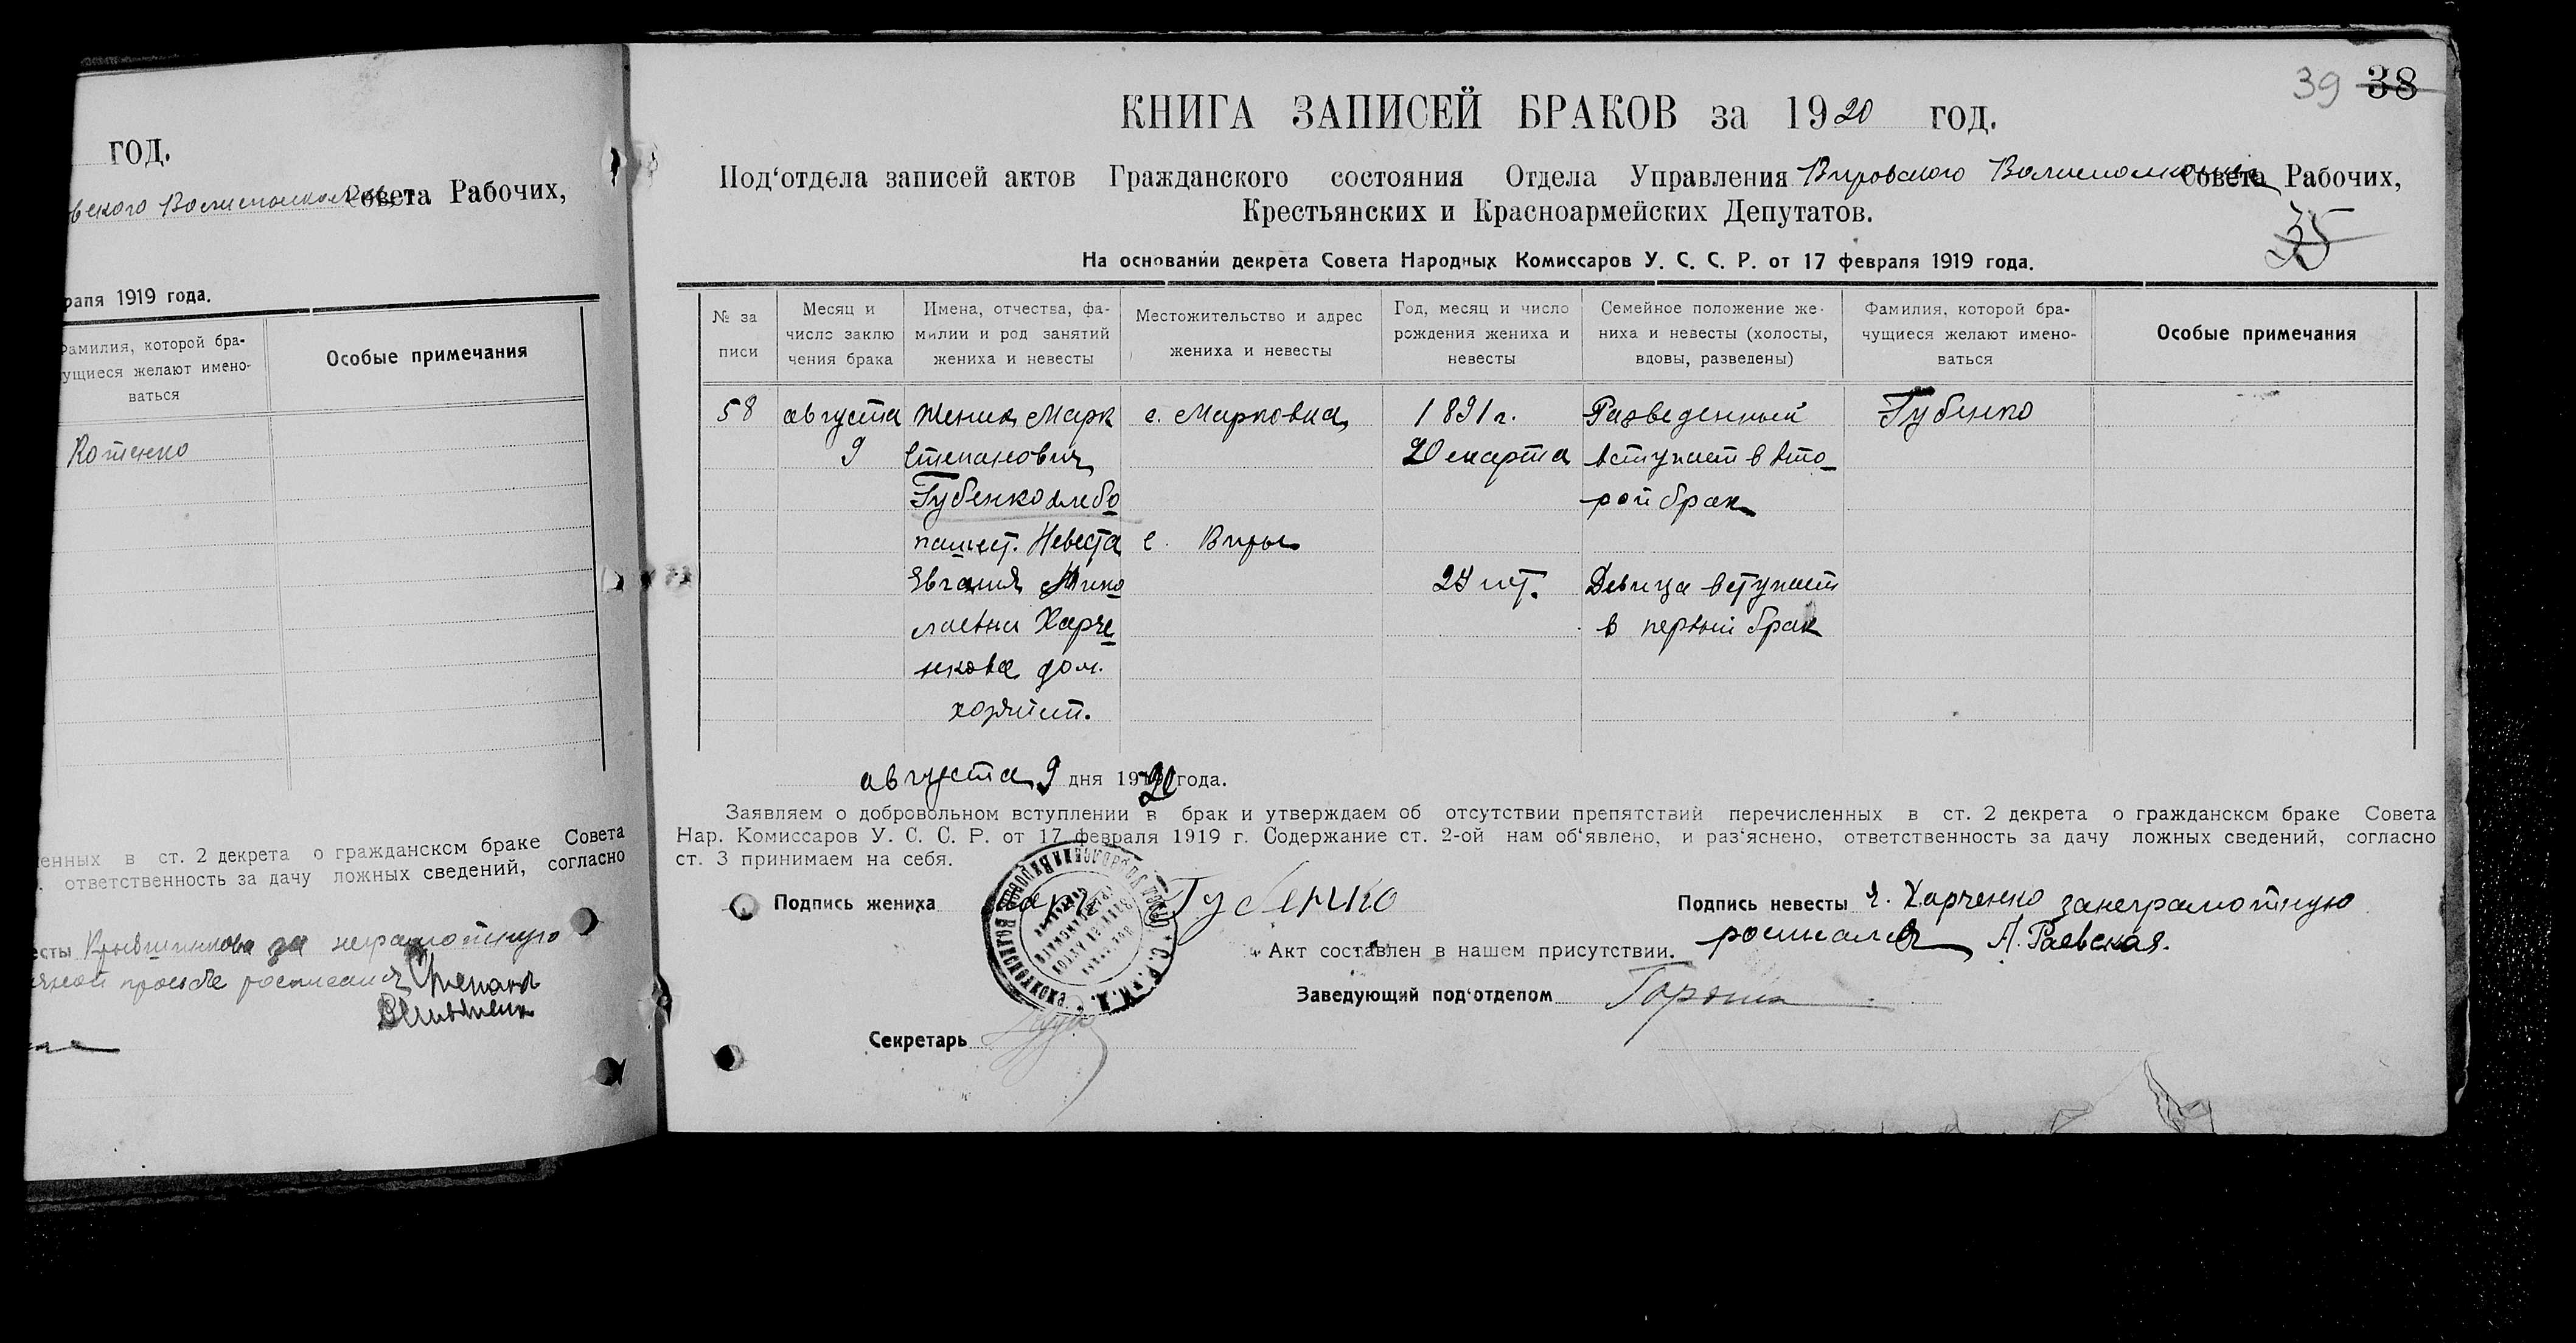 год.
Совета Рабочих,
раля 1919 года.
Фамилия, которой бра-
чущиеся желают имено-
ваться
Особые примечания
Котенко
ленных в ст. 2 декрета о гражданском браке Совета
ответственность за дачу ложных сведений, согласно
за неграмотную
39 38
КНИГА ЗАПИСЕЙ БРАКОВ за 1920 год.
Под‘отдела записей актов Гражданского состояния Отдела Управления Вировского Волисполкома Совета Рабочих,
Крестьянских и Красноармейских Депутатов.
35
На основании декрета Совета Народных Комиссаров У. С. С. Р. от 17 февраля 1919 года.
№ за
писи
Месяц и
число заклю
чения брака
Имена, отчества, фа-
милии и род занятий
жениха и невесты
Местожительство и адрес
жениха и невесты
Год, месяц и число
рождения жениха и
невесты
Семейное положение же-
ниха и невесты (холосты,
вдовы, разведены)
Фамилия, которой бра-
чущиеся желают имено-
ваться
Особые примечания
58 августа Жених Марк с. Марковка 1891 г. Разведенный Губенко
9 Степанович 20 марта вступает в вто-
Губенко хлебо рой брак
пашест. Невеста с. Виры
Евгения Нико 24 лет. Девица вступает
лаевна Харче в первый брак
нкова дом.
хозяйст.
августа 9 дня 1920 года.
Заявляем о добровольном вступлении в брак и утверждаем об отсутствии препятствий перечисленных в ст. 2 декрета о гражданском браке Совета
Нар. Комиссаров У. С. С. Р. от 17 февраля 1919 г. Содержание ст. 2-ой нам об‘явлено, и раз‘яснено, ответственность за дачу ложных сведений, согласно
ст. 3 принимаем на себя.
Подпись жениха Губенко
Подпись невесты Я. Харченко занеграмотную
росписался А. Раевская.
Акт составлен в нашем присутствии.
Заведующий под‘отделом
Секретарь